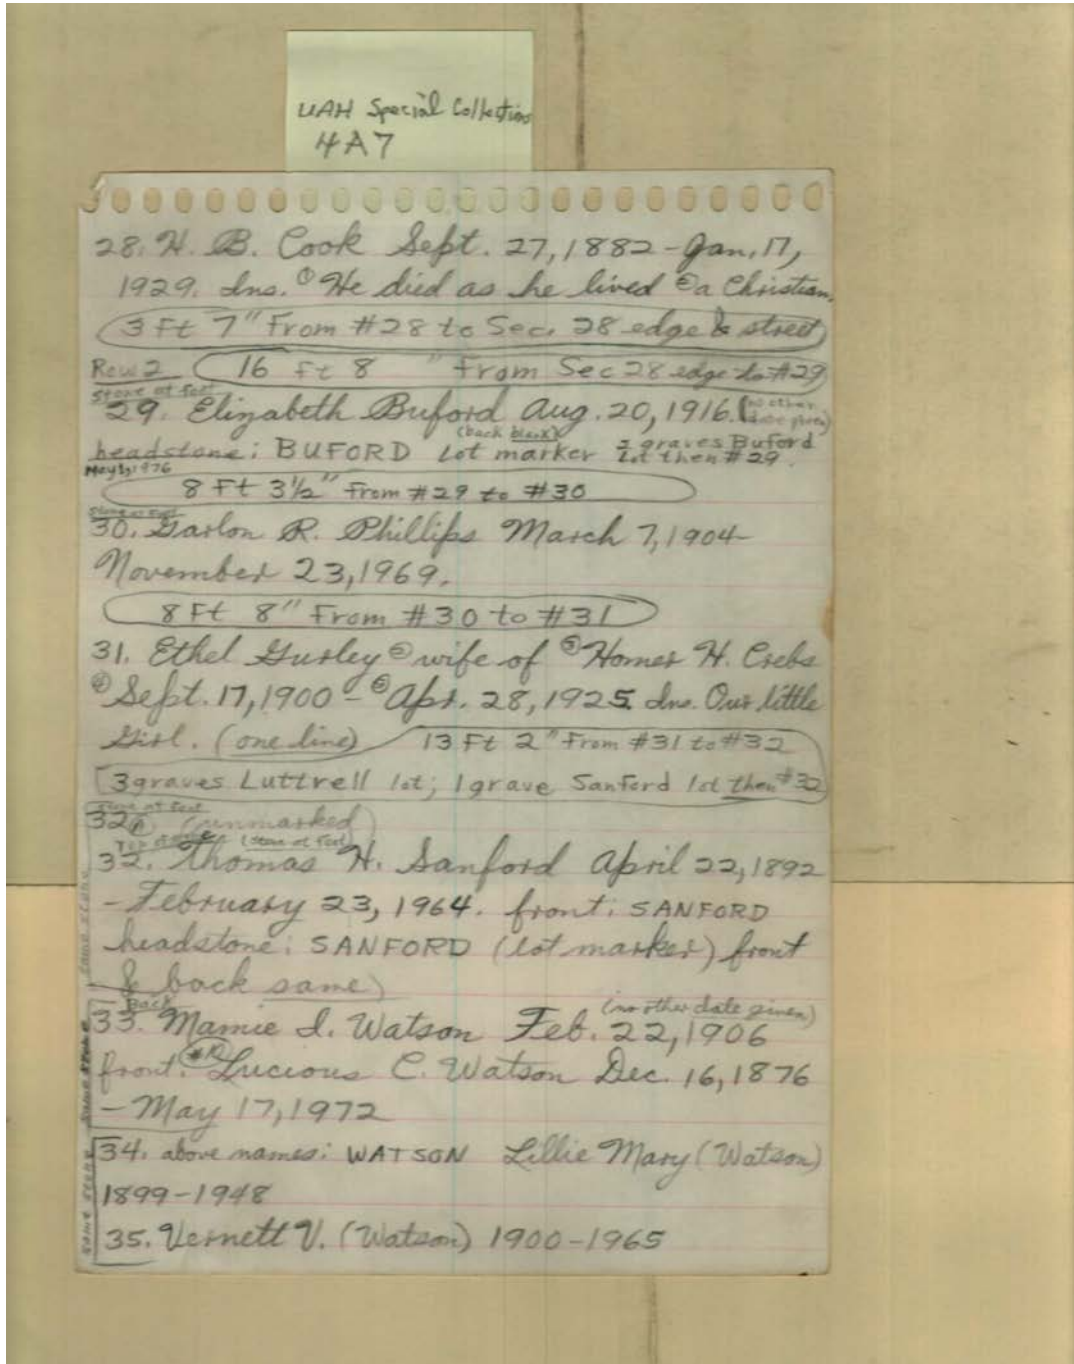 UAH Special Collections
4A7
28. H. B. Cook Sept. 27, 1882 - Jan. 17,
1929. Ins. ① He died as he lived ② a Christian.
3 Ft 7" From #28 to Sec. 28 edge & street
Row 2 16 Ft 8 " From Sec 28 edge to #29
stone at feet
29. Elizabeth Buford Aug. 20, 1916. (no other date given)
(back blank)
headstone: BUFORD lot marker 2 graves Buford lot then #29.
May 1, 1976
8 Ft 3½" From #29 to #30
stone at feet
30. Garlon R. Phillips March 7, 1904-
November 23, 1969.
8 Ft 8" From #30 to #31
31. Ethel Gurley ② wife of ③ Homer H. Crebs
④ Sept. 17, 1900 - ⑤ Apr. 28, 1925 Ins. Our little
Girl. (one line) 13 Ft 2" From #31 to #32
3 graves Luttrell lot; 1 grave Sanford lot then #32
stone at feet
32 A (unmarked)
Top stone (stone at feet)
32. Thomas H. Sanford April 22, 1892
- February 23, 1964. front: SANFORD
headstone: SANFORD (lot marker) front
& back same)
Back (no other date given)
33. Mamie I. Watson Feb. 22, 1906
front: Lucious C. Watson Dec. 16, 1876
- May 17, 1972
same stone
34. above names: WATSON Lillie Mary (Watson)
1899-1948
same stone
35. Vernett V. (Watson) 1900-1965
same stone